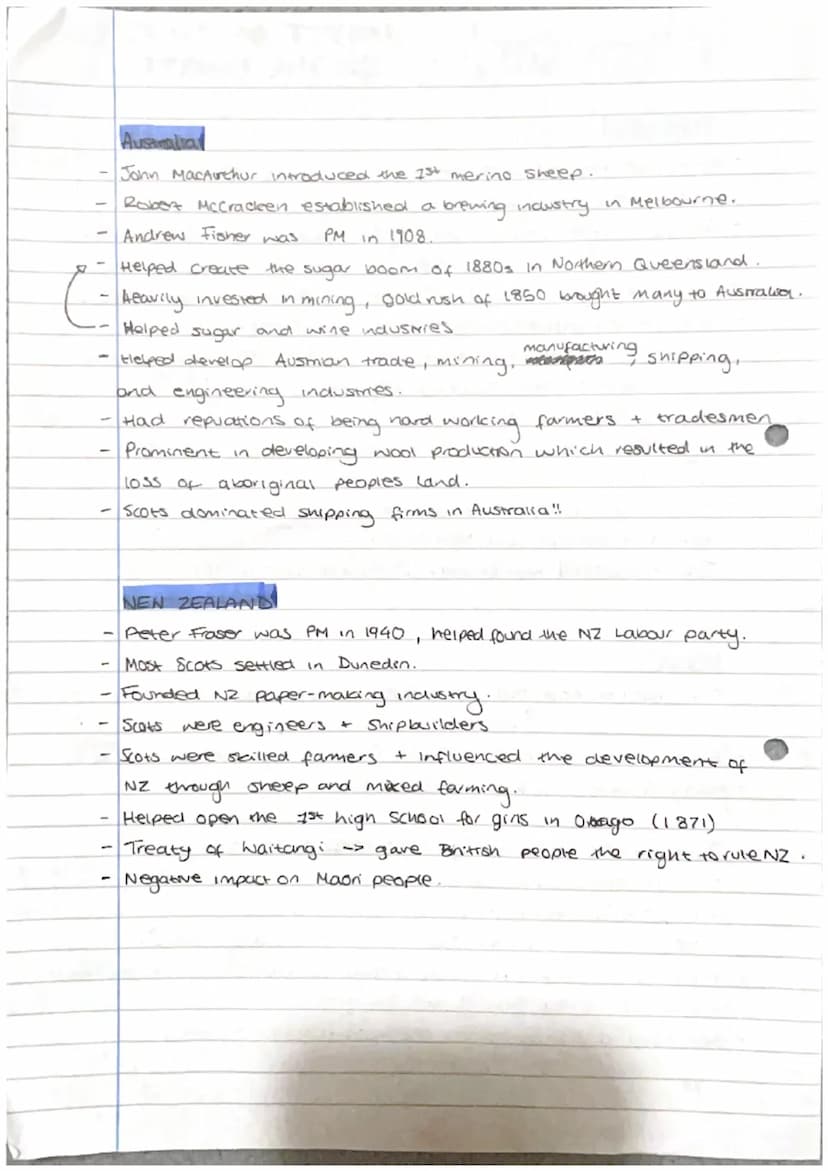 Australia
- John MacArthur introduced the 1st merino sheep.
- Robert McCracken established a brewing industry in Melbourne.
- Andrew Fisher was PM in 1908.
- Helped create the sugar boom of 1880s in Northern Queensland.
- Heavily invested in mining, gold rush of 1850 brought many to Australia.
- Helped sugar and wine industries
- Helped develop Ausrian trade, mining, manufacturing, shipping,
and engineering industries.
- Had repuations of being hard working farmers + tradesmen
- Prominent in developing wool production which resulted in the
loss of aboriginal peoples land.
- Scots dominated shipping firms in Australia!!
NEW ZEALAND
- Peter Fraser was PM in 1940, helped found the NZ Labour party.
- Most Scots settled in Duneden.
- Founded NZ paper-making industry.
- Scots were engineers + Shipbuilders
- Scots were skilled farmers + influenced the development of
NZ through sheep and mixed farming.
- Helped open the 1st high School for girls in Otago (1871)
- Treaty of Waitangi -> gave British people the right to rule NZ.
- Negative impact on Maori people.